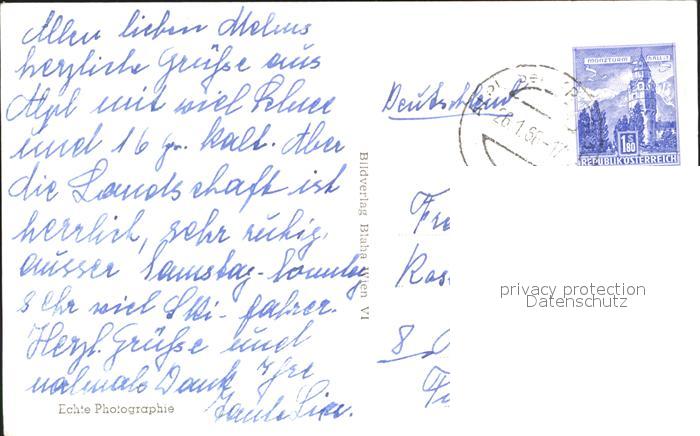 Allen lieben Melms
herzliche Grüße aus
Alpl mit viel Schnee
und 16 gr. kalt. Aber
die Landschaft ist
herrlich, sehr ruhig,
ausser Samstag-Sonntag
sehr viel Ski-fahrer.
Herzl. Grüße und
nochmals Dank Ihre
Tante
Echte Photographie
Bildverlag Blaha Wien VI
Deutschland
28.1.66-17
MÜNZTURM HALL i.T.
1.80
REPUBLIK ÖSTERREICH
Fre
Ros
8
privacy protection
Datenschutz